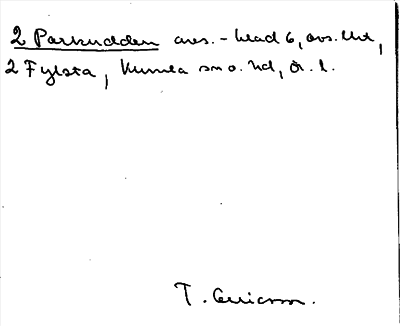 2 Parkudden avs. - blad 6, avs. Utt,
2 Fylsta, Kumla sn o. hd, Ör. l.
T. Ericsson.